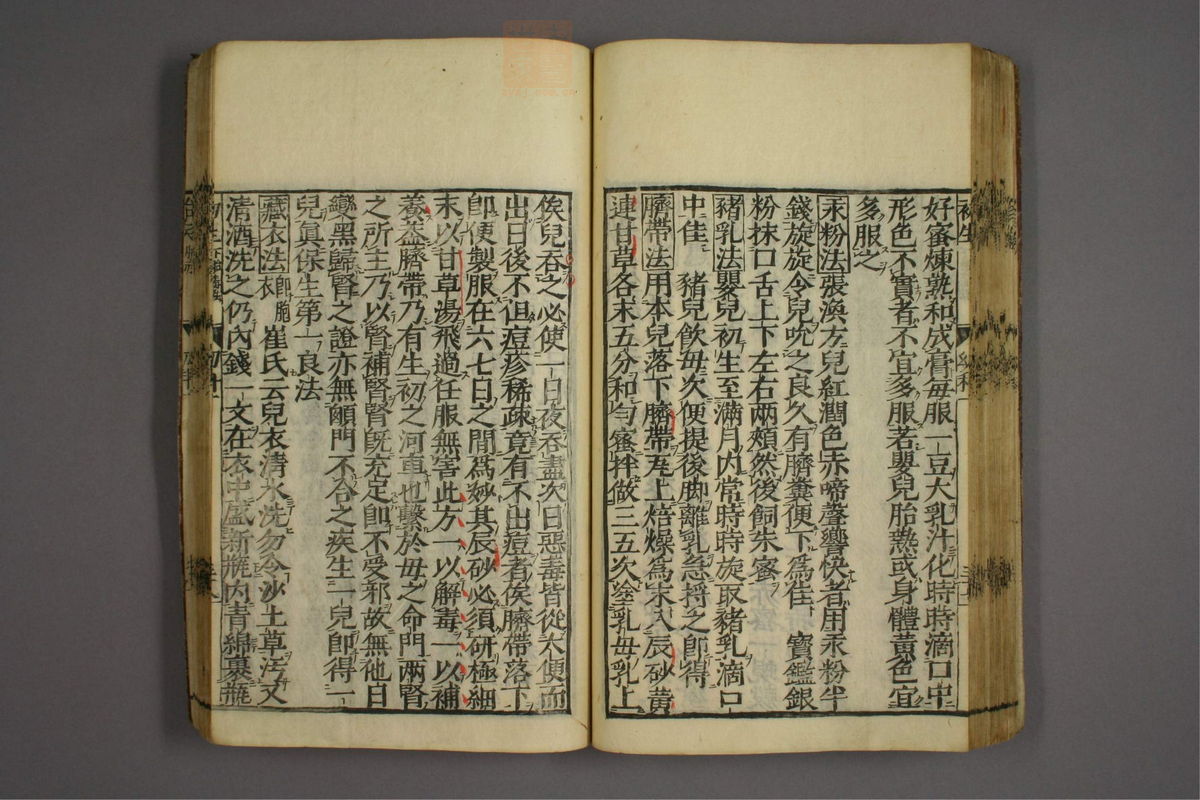 初生
好蜜煉熟和成膏每服一豆大乳汁化時時滴口中
形色不實者不宜多服若嬰兒胎熱或身體黃色宜
多服之
汞粉法張渙方兒紅潤色赤啼聲響快者用汞粉半
錢旋旋令兒吮之良久有臍糞便下爲佳　寶鑑銀
粉抹口舌上下左右兩頰然後飼朱蜜
豬乳法嬰兒初生至滿月内常時時旋取豬乳滴口
中佳　豬兒飲母次便提後脚離乳急捋之即得
臍帶法用本兒落下臍帶瓦上焙燥爲末入辰砂黃
連甘草各末五分和勻蜜拌做三五次塗乳母乳上
俟兒吞之必使一日夜吞盡次日惡毒皆從大便而
出日後不但痘疹稀疎竟有不出痘者俟臍帶落下
即便製服在六七日之間爲妙其辰砂必須研極細
末以甘草湯飛過任服無害此方一以解毒一以補
養蓋臍帶乃有生初之河車也繫於母之命門兩腎
之所主乃以腎補腎腎既充足即不受邪故無他日
變黑歸腎之證亦無顖門不合之疾生一兒即得一
兒眞保生第一良法
藏衣法即胞衣　崔氏云兒衣清水洗勿令沙土草汚又
清酒洗之仍内錢一文在衣中盛新瓶内青綿裹瓶